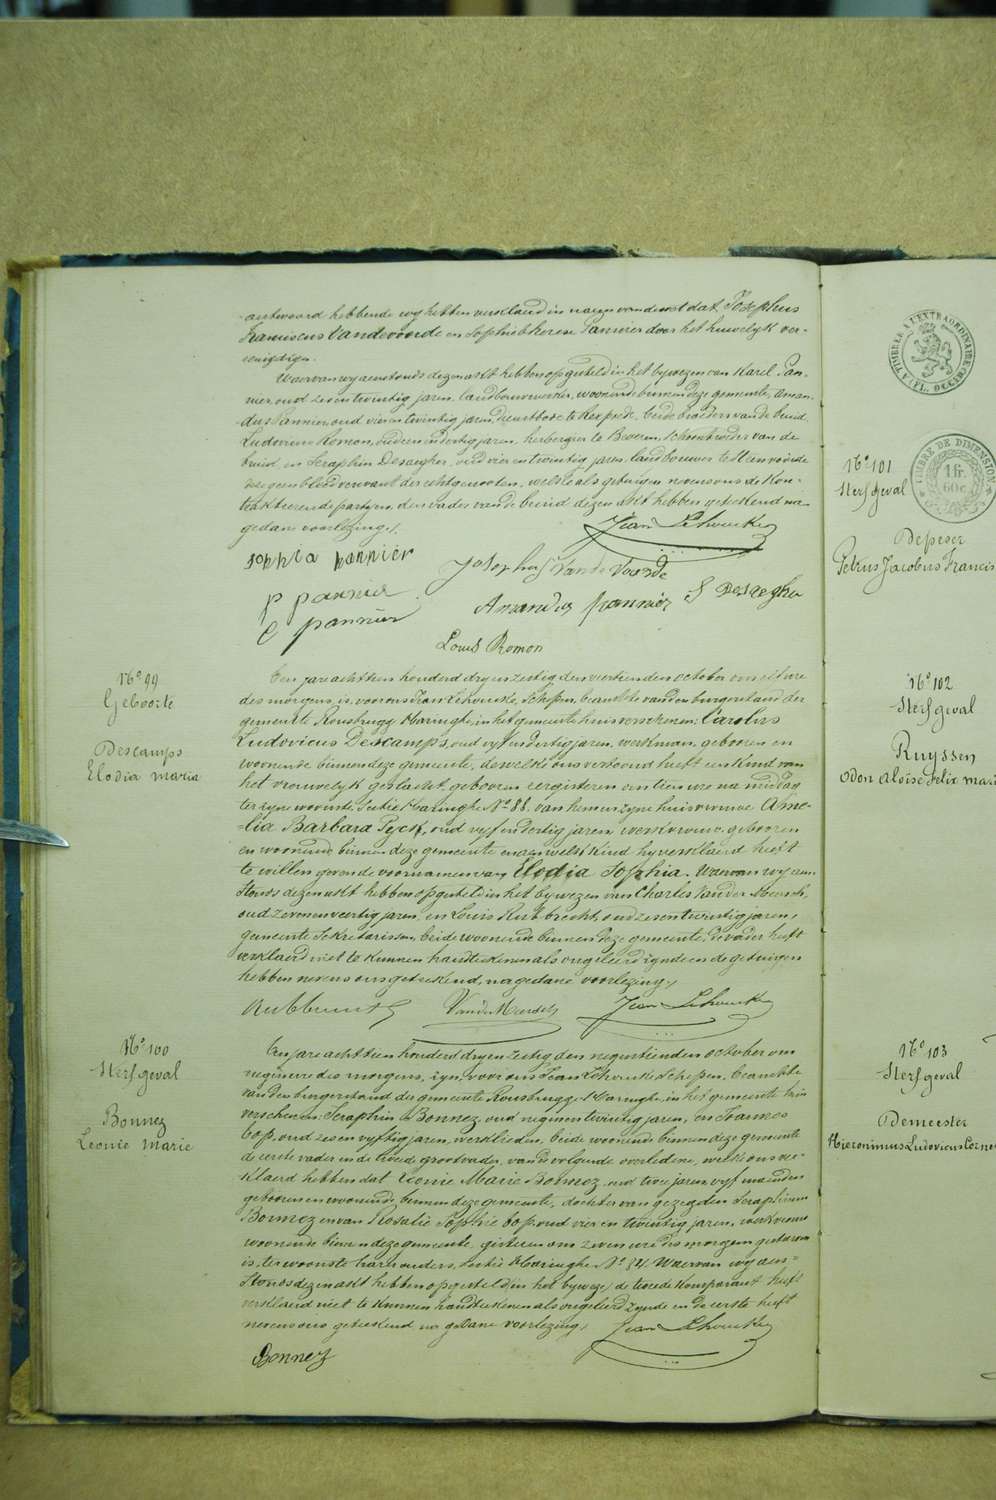 antwoord hebbende wij hebben verklaard in naam van de wet dat Josephus
Franciscus Vandevoorde en Sophie Therese Pannier door het huwelyk ver-
eenigd zijn.
Waervan wy aenstonds dezen akt hebben opgesteld in het bywezen van Karel Pan-
nier, oud zeven twintig jaren, landbouwwerker, woonende binnen deze gemeente, Aman-
dus Pannier, oud vier en twintig jaren, dienstbode te Rexpoede, beide broeders van de bruid,
Ludovicus Romon, oud een en dertig jaren, herbergier te Beveren, schoonbroeder van de
bruid, en Seraphin Desaegher, oud vier en twintig jaren, landbouwer te Steenvoorde
geen bloedverwant der echtgenooten, welke als getuigen nevens ons de kon-
trakterende partyen, den vader van de bruid dezen akt hebben geteekend na
gedane voorlezing.
Jean Lehoucke
sophia pannier
Josephus Van de Voorde
p pannier
Amandus pannier S Desaegher
C pannier
Louis Romon
No 99
Geboorte
Descamps
Elodia Maria
Ten jare achttien honderd dry en zestig den veertienden october om elf ure
des morgens, is voor ons Jean Lehoucke, Schepen, beambte van den burgerstand der
gemeente Rousbrugge Haringhe, in het gemeentehuis verschenen: Carolus
Ludovicus Descamps, oud vyf en dertig jaren, werkman, geboren en
woonende binnen deze gemeente, dewelke ons vertoond heeft een kind van
het vrouwelyk geslacht, geboren eergisteren om tien ure na middag
te zyne woonste, Sectie Haringhe No 88. van hem en zyne huisvrouwe Ame-
lia Barbara Pyck, oud vyf en dertig jaren, werkvrouw, geboren
en woonende binnen deze gemeente en aen welk kind hy verklaerd heeft
te willen geven de voornamen van Elodia Sophia. Waervan wy aen-
stonds dezen akt hebben opgesteld in het bywezen van Charles Vander Meersch,
oud zeven en veertig jaren, en Louis Rubbrecht, oud zes en twintig jaren,
gemeente Sekretarissen, beide woonende binnen deze gemeente, de vader heeft
verklaerd niet te kunnen handteekenen als ongeleerd zynde en de getuigen
hebben nevens ons geteekend, na gedane voorlezing.
Rubbrecht VanderMeersch Jean Lehoucke
No 100
Sterfgeval
Bonnez
Leonie Marie
Ten jare achttien honderd dry en zestig den negentienden october om
negen ure des morgens, zyn, voor ons Jean Lehoucke Schepen, beambte
van den burgerstand der gemeente Rousbrugge-Haringhe, in het gemeente huis
verschenen: Seraphin Bonnez, oud negen twintig jaren, en Joannes
Cop, oud zes en vyftig jaren, werklieden, beide woonende binnen deze gemeente
de eerste vader en de tweede grootvader, van de volgende overledene, welke ons ver-
klaerd hebben dat Leonie Marie Bonnez, oud twee jaren vyf maenden
geboren en woonende binnen deze gemeente, dochter van gezegden Seraphinus
Bonnez en van Rosalie Sophie Cop, oud vier en twintig jaren, werkvrouw
woonende binnen deze gemeente, gisteren om zeven ure des morgens gestorven
is, ter woonste harer ouders, sectie Haringhe No 34. Waervan wy aen-
stonds dezen akt hebben opgesteld in het bywezen, de tweede komparant heeft
verklaerd niet te kunnen handteekenen als ongeleerd zynde en de eerste heeft
nevens ons geteekend na gedane voorlezing.
Jean Lehoucke
Bonnez
A TIMBRER A L'EXTRAORDINAIRE (FL. OCCID.)
TIMBRE DE DIMENSION
1 fr.
60 c.
No 101
Sterfgeval
Depeser
Petrus Jacobus Francis
No 102
Sterfgeval
Ruyssen
Odon Aloïse Felix Mari
No 103
Sterfgeval
Demeester
Hieronimus Ludovicus Corne